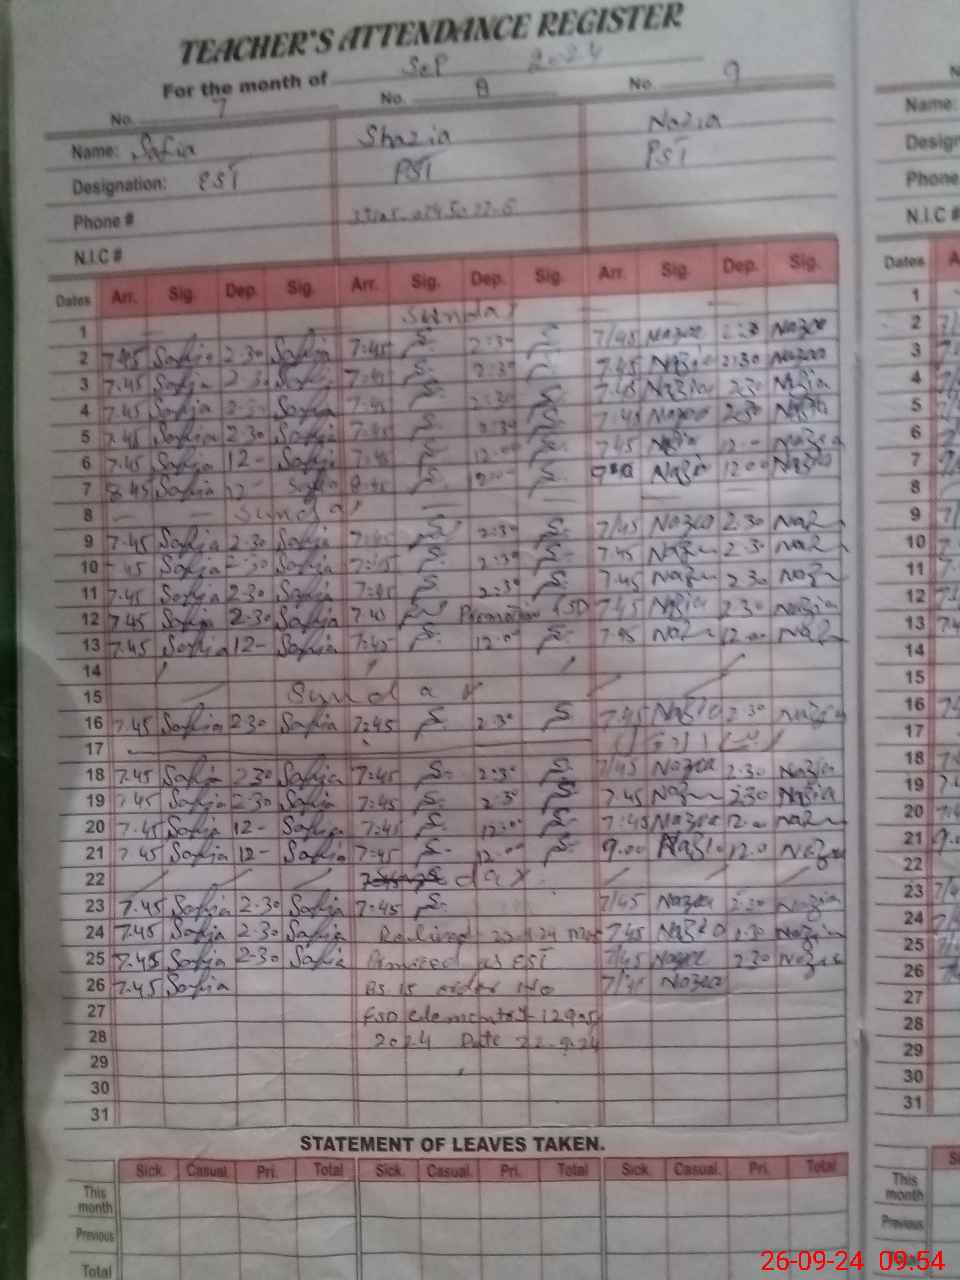 TEACHER'S ATTENDANCE REGISTER
For the month of Sep 2024
No. 7 No. 8 No. 9
Name: Safia Shazia Nazia
Designation: EST PST PST
Phone #
N.I.C #
Dates Arr. Sig. Dep. Sig. Arr. Sig. Dep. Sig. Arr. Sig. Dep. Sig.
1 Sunday
2 7.45 Safia 2.30 Safia 7:45 S. 2:30 S. 7/45 Nazia 2:30 Nazia
3 7.45 Safia 2.30 Safia 7:45 S. 2:30 7.45 Nazia 2:30 Nazia
4 7.45 Safia 2.30 Safia 7:45 S. 2:30 S. 7.45 Nazia 2.30 Nazia
5 7.45 Safia 2.30 Safia 7:45 S. 2:30 S. 7.45 Nazia 2.30 Nazia
6 7.45 Safia 12- Safia 7:45 S. 12.00 S. 7.45 Nazia 12.00 Nazia
7 8.45 Safia 12- Safia 8:45 S. 12:00 S. Nazia 12.00 Nazia
8 Sunday
9 7.45 Safia 2.30 Safia 7:45 S. 2:30 S. 7/45 Nazia 2.30 Naz
10 7.45 Safia 2.30 Safia 7:45 S. 2:30 S. 7.45 Naz 2.30 Naz
11 7.45 Safia 2.30 Safia 7:45 S. 2:30 S. 7.45 Naz 2.30 Naz
12 7.45 Safia 2.30 Safia 7:45 S. Promotion 7.45 Nazia 2.30 Nazia
13 7.45 Safia 12- Safia 7:45 S. 12.00 S. 7.45 Naz 12.00 Naz
14
15 Sunday
16 7.45 Safia 2.30 Safia 7:45 S. 2.30 S. 7.45 Nazia 2.30 Nazia
17
18 7.45 Safia 2.30 Safia 7:45 S. 2:30 S. 7/45 Nazia 2.30 Nazia
19 7.45 Safia 2.30 Safia 7:45 S. 2:30 S. 7.45 Naz 2.30 Nazia
20 7.45 Safia 12- Safia 7:45 S. 12:00 S. 7:45 Nazia 12.00 Naz
21 7.45 Safia 12- Safia 7:45 S. 12.00 S. 9.00 Nazia 12.0 Nazia
22 day
23 7.45 Safia 2.30 Safia 7:45 S. 7/45 Nazia 2.30 Nazia
24 7.45 Safia 2.30 Safia 7.45 Nazia 2.30 Nazia
25 7.45 Safia 2.30 Safia as EST 7/45 Nazia 2.30 Nazia
26 7.45 Safia order No 7/45 Nazia
27
28 2024 Date 22.9.24
29
30
31
STATEMENT OF LEAVES TAKEN.
Sick. Casual. Pri. Total Sick. Casual. Pri. Total Sick. Casual. Pri. Total
This month
Previous
Total
Name:
Phone
N.I.C #
Dates
1
2
3
4
5
6
7
8
9
10
11
12
13
14
15
16
17
18
19
20
21
22
23
24
25
26
27
28
29
30
31
This month
Previous
26-09-24 09:54